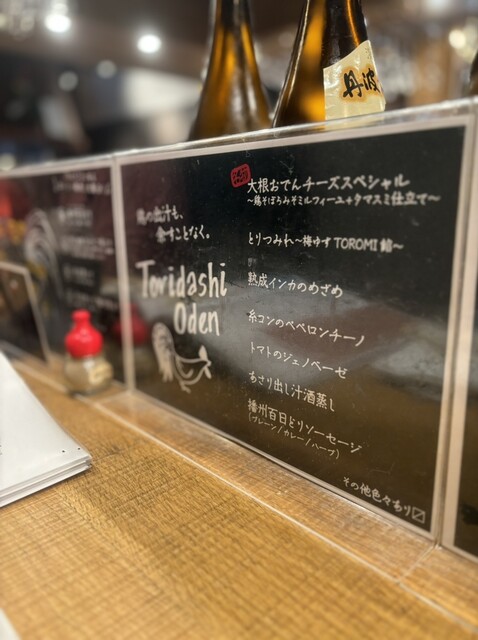 丹波
鶏の出汁も、
余すことなく。
Toridashi
Oden
大根おでんチーズスペシャル
〜鶏そぼろみそミルフィーユ+タマスミ仕立て〜
とりつみれ〜梅ゆずTOROMI餡〜
熟成インカのめざめ
糸コンのペペロンチーノ
トマトのジェノベーゼ
あさり出し汁酒蒸し
播州百日どりソーセージ
(プレーン/カレー/ハーブ)
その他色々あり〼